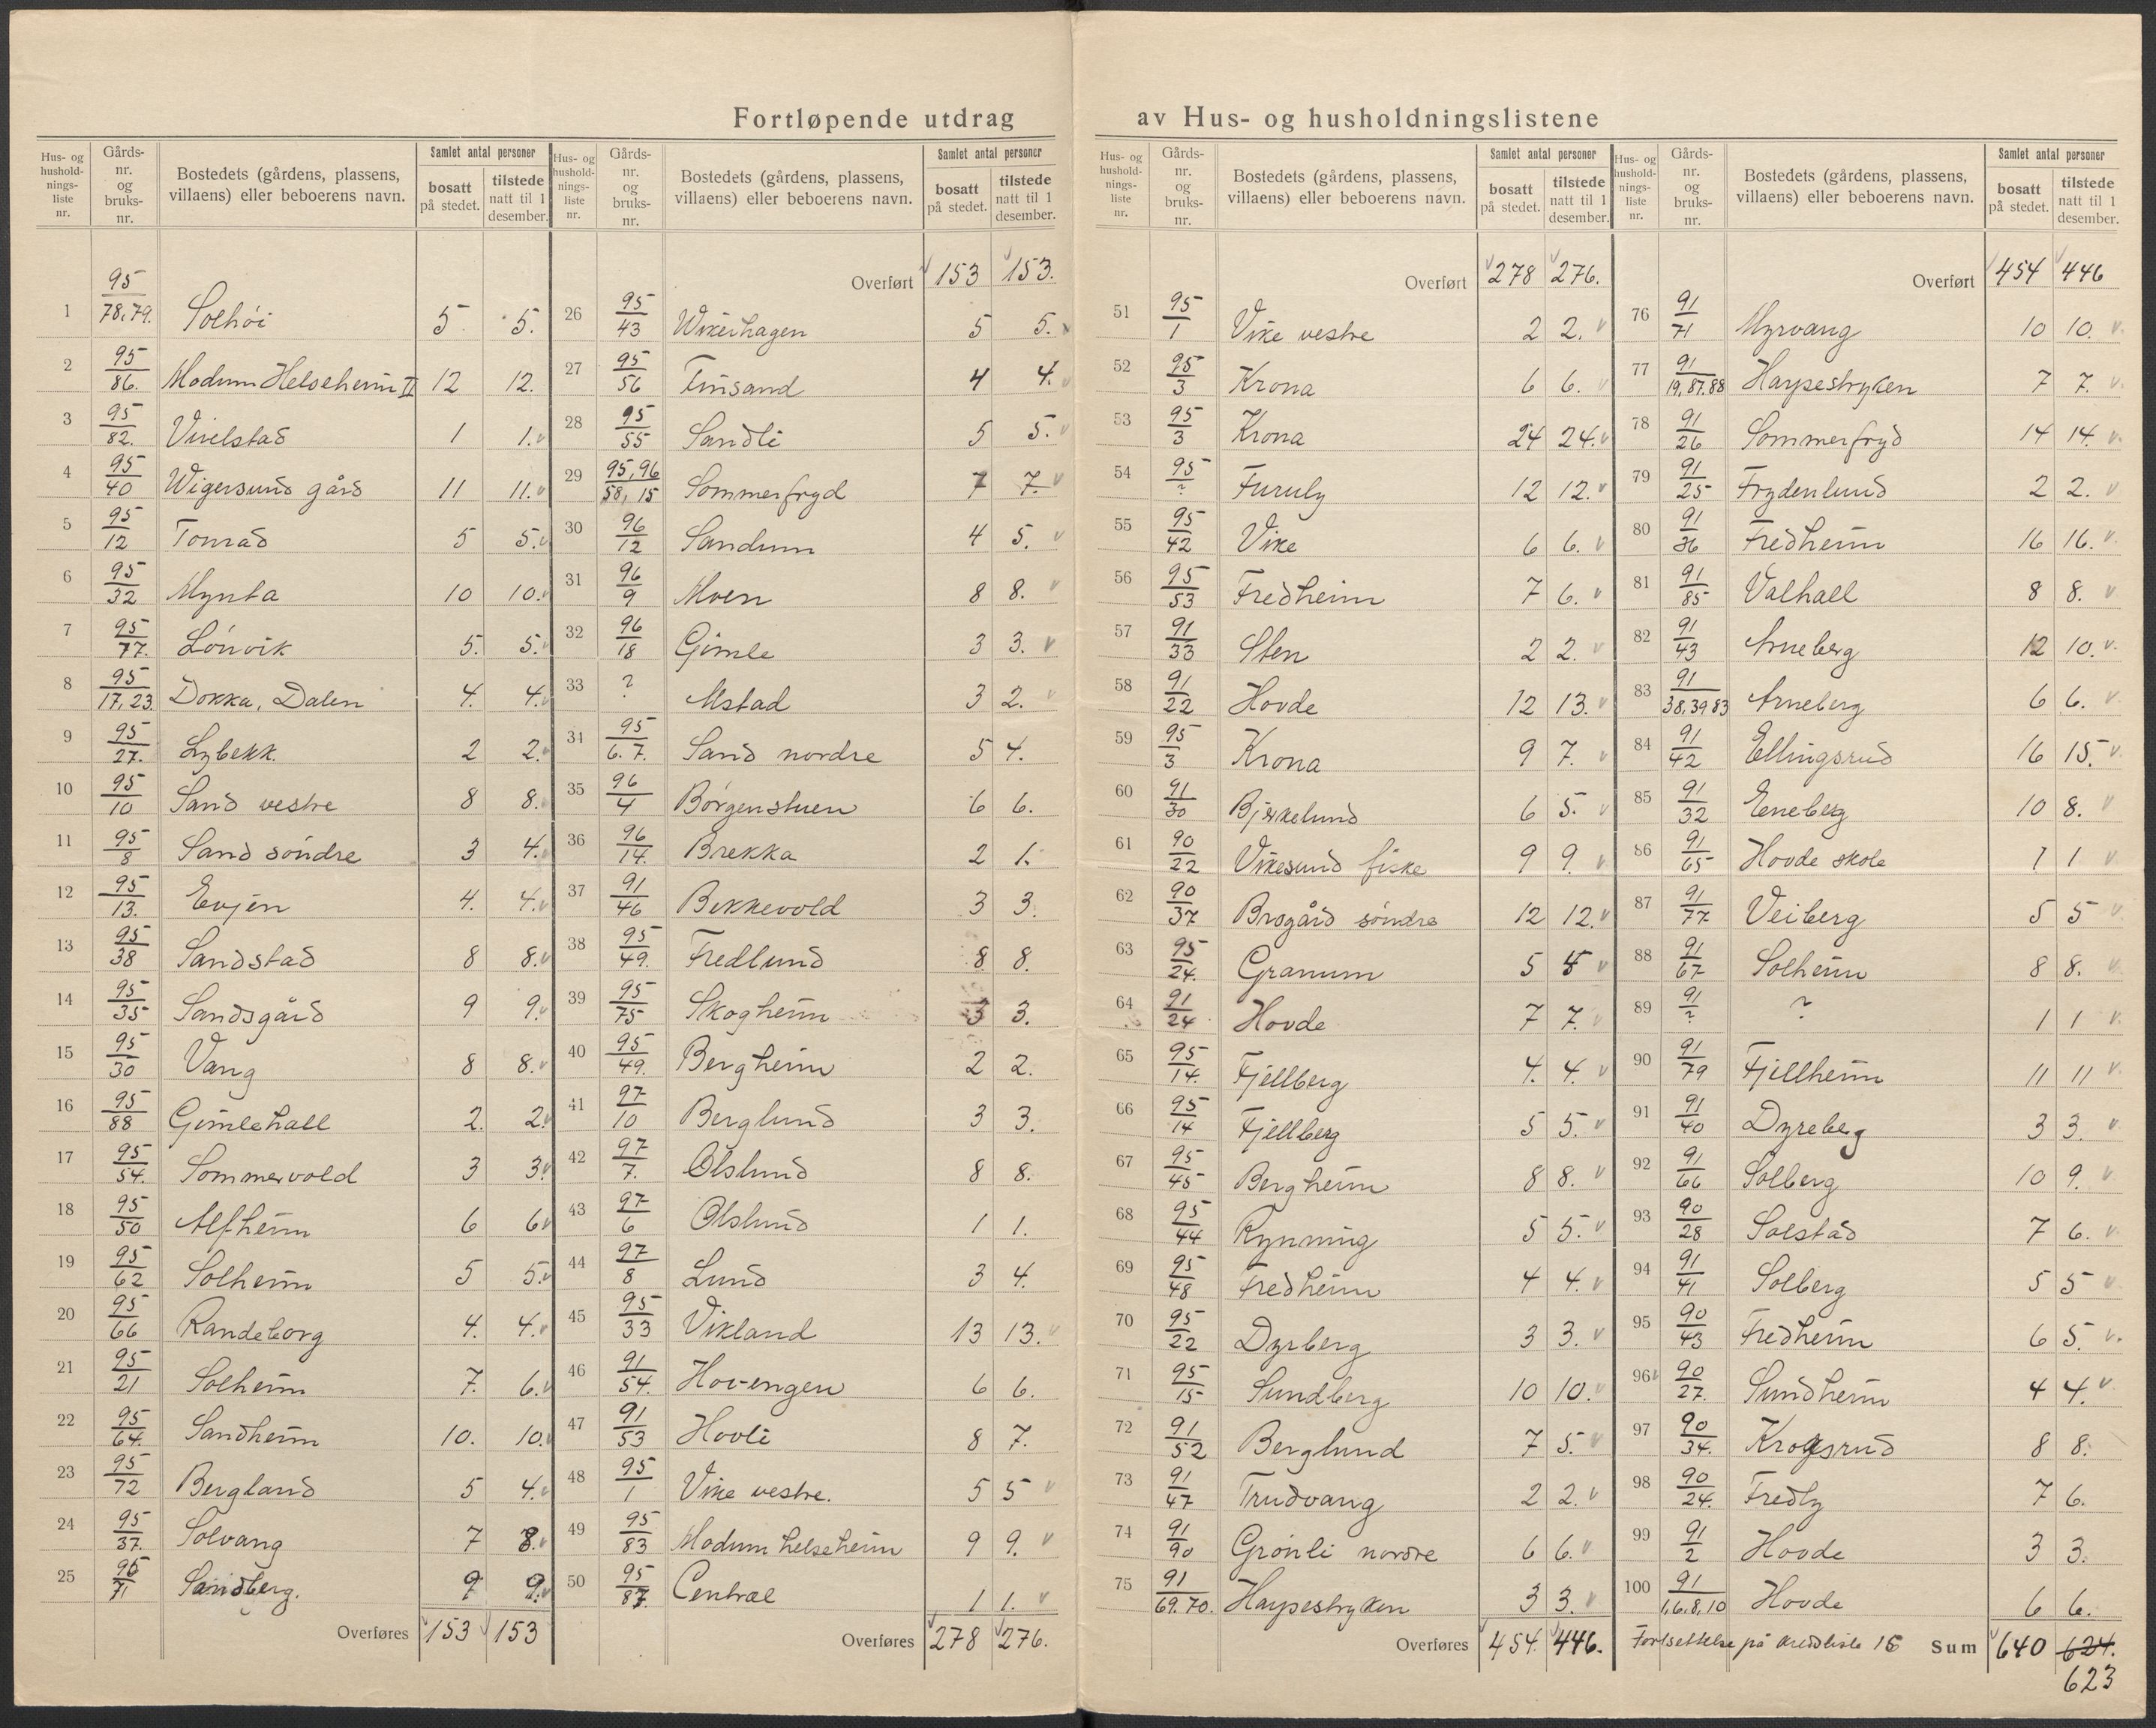 Fortløpende utdrag av Hus- og husholdningslistene
Hus- og husholdnings-liste nr. | Gårds-nr. og bruks-nr. | Bostedets (gårdens, plassens, villaens) eller beboerens navn. | Samlet antal personer | bosatt på stedet. | tilstede natt til 1 desember.
1 95/78,79. Solhöi 5 5.
2 95/86. Modum Helseheim II 12 12.
3 95/82. Virelstad 1 1.
4 95/40 Wigersund gård 11 11.
5 95/12 Tomras 5 5.
6 95/32 Mynta 10 10.
7 95/77. Lövvik 5. 5.
8 95/17,23. Dokka, Dalen 4. 4.
9 95/27. Lybekk. 2 2.
10 95/10 Sand vestre 8 8.
11 95/8 Sand söndre 3 4.
12 95/13. Evjen 4. 4.
13 95/38 Sandstad 8 8.
14 95/35 Sandsgård 9 9.
15 95/30 Vang 8 8.
16 95/88 Gimlehall 2. 2.
17 95/54. Sommervold 3 3.
18 95/50 Alfheim 6 6
19 95/62 Solheim 5 5.
20 95/66 Randeborg 4. 4.
21 95/21 Solheim 7. 6.
22 95/64. Sandheim 10. 10.
23 95/72 Bergland 5 4.
24 95/37. Solvang 7 8.
25 95/71 Sandberg. 9 9.
Overføres 153 153
Overført 153 153.
26 95/43 Wikerhagen 5 5.
27 95/56 Finsand 4 4.
28 95/55 Sandli 5 5.
29 95,96/58, 15 Sommerfryd 7 7.
30 96/12 Sandum 4 5.
31 96/9 Moen 8 8.
32 96/18 Gimle 3 3.
33 ? Alstad 3 2.
34 95/6.7. Sand nordre 5 4.
35 96/4 Börgenstuen 6 6.
36 96/14. Brekka 2 1.
37 91/46 Bekkevold 3 3.
38 95/49. Fredlund 8 8.
39 95/75 Skogheim 3 3.
40 95/49. Bergheim 2 2.
41 97/10 Berglund 3 3.
42 97/7. Olslund 8 8.
43 97/6 Olslund 1 1.
44 97/8 Lund 3 4.
45 95/33 Vikland 13 13.
46 91/54. Hovengen 6 6.
47 91/53 Hovli 8 7.
48 95/1 Vike vestre. 5 5
49 95/83 Modum helseheim 9 9.
50 95/87. Central 1 1.
Overføres 278 276.
Overført 278 276.
51 95/1 Vike vestre 2 2.
52 95/3 Krona 6 6.
53 95/3 Krona 24 24.
54 95/? Furuly 12 12.
55 95/42 Vike 6 6.
56 95/53 Fredheim 7 6.
57 91/33 Sten 2 2.
58 91/22 Hovde 12 13.
59 95/3 Krona 9 7.
60 91/30 Bjerkelund 6 5.
61 90/22 Vikesund fiske 9 9.
62 90/37 Brogård söndre 12 12.
63 95/24. Granum 5 5
64 91/24 Hovde 7 7.
65 95/14. Fjellberg 4. 4.
66 95/14 Fjellberg 5 5.
67 95/45 Bergheim 8 8.
68 95/44 Rynning 5 5.
69 95/48 Fredheim 4 4.
70 95/22 Dyrberg 3 3.
71 95/15 Sundberg 10 10.
72 91/52 Berglund 7 5.
73 91/47 Trudvang 2 2.
74 91/90 Grönli nordre 6 6.
75 91/69.70. Harpestryken 3 3.
Overføres 454. 446.
Overført 454 446
76 91/71 Myrvang 10 10.
77 91/19,87.88 Harpestryken 7 7.
78 91/26 Sommerfryd 14 14.
79 91/25 Frydenlund 2 2.
80 91/36 Fredheim 16 16.
81 91/85 Valhall 8 8.
82 91/43 Arneberg 12 10.
83 91/38,39 83 Arneberg 6 6.
84 91/42 Ellingsrud 16 15.
85 91/32 Eneberg 10 8.
86 91/65 Hovde skole 1 1
87 91/77 Veiberg 5 5
88 91/67 Solheim 8 8.
89 91/? ? 1 1
90 91/79 Fjellheim 11 11
91 91/40 Dyreberg 3 3.
92 91/66 Solberg 10 9.
93 90/28 Solstad 7 6.
94 91/41 Solberg 5 5
95 90/43 Fredheim 6 5.
96 90/27. Sundheim 4 4.
97 90/34. Krogsrud 8 8.
98 90/24. Fredly 7 6.
99 91/2 Hovde 3 3.
100 91/1,6.8,10 Hovde 6 6.
Fortsettelse på kredsliste 16 Sum 640 624.
623